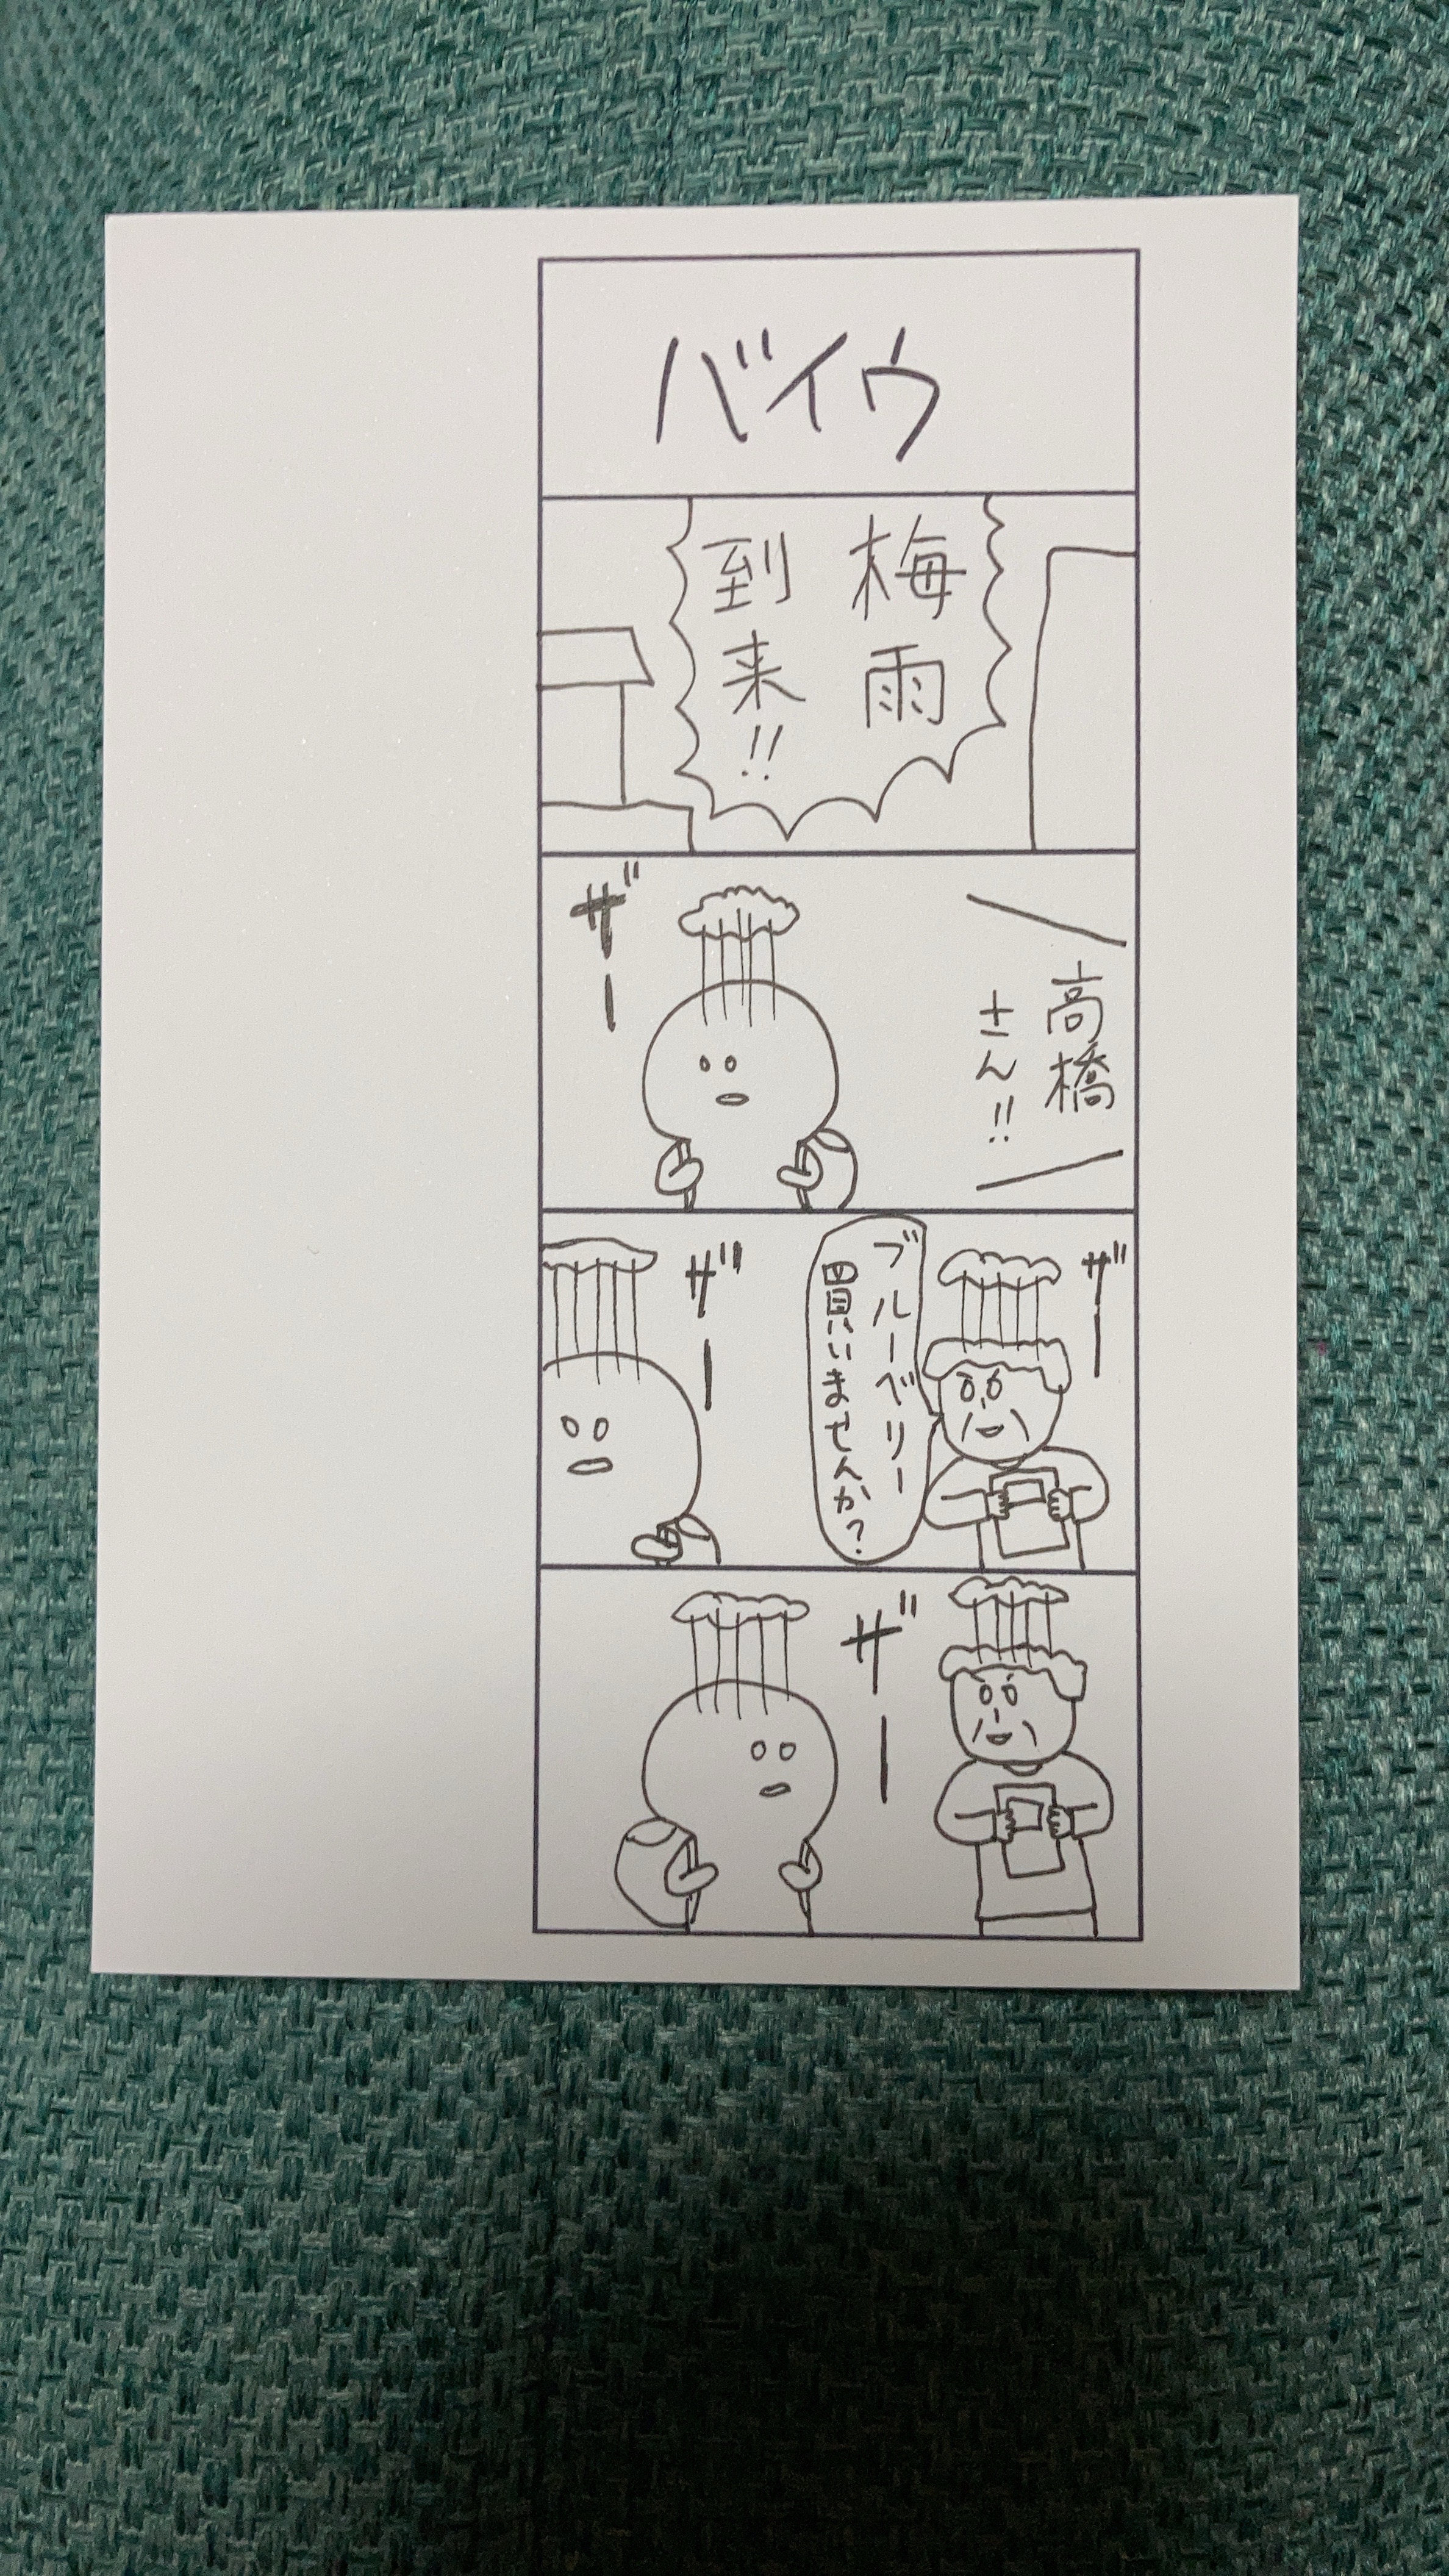 バイウ
梅雨
到来!!
高橋
さん!!
ザー
ザー
ブルーベリー
買いませんか?
ザー
ザー